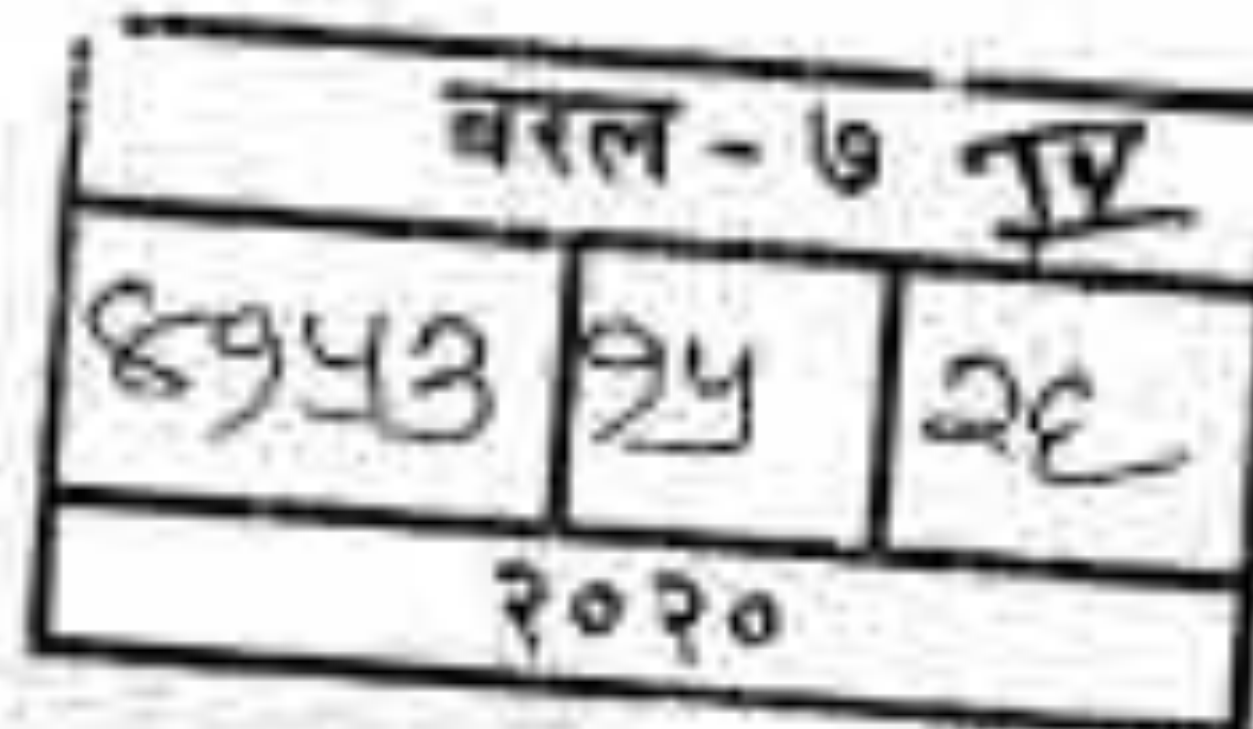 बरल - ७ IV
४१५३ १५ २६
२०२०